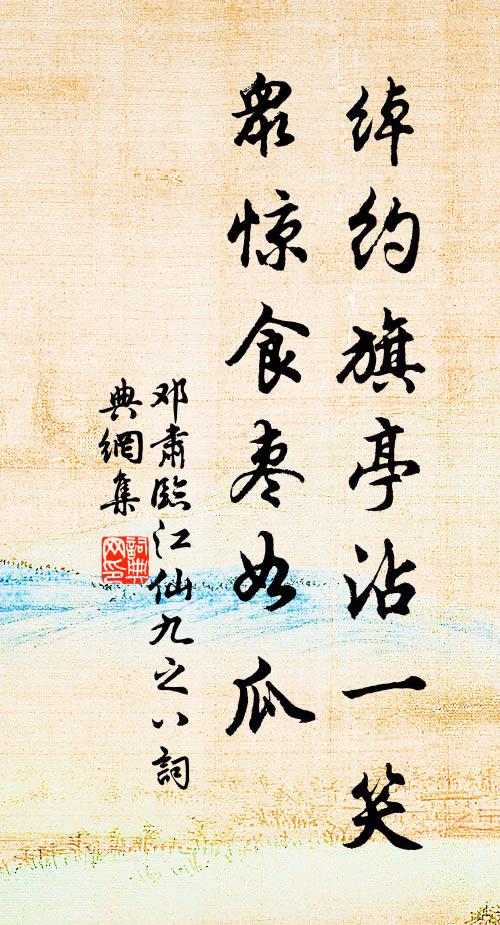 绰约旗亭沾一笑
众惊食枣如瓜
邓肃临江仙九之八词
典网集
词典
网印